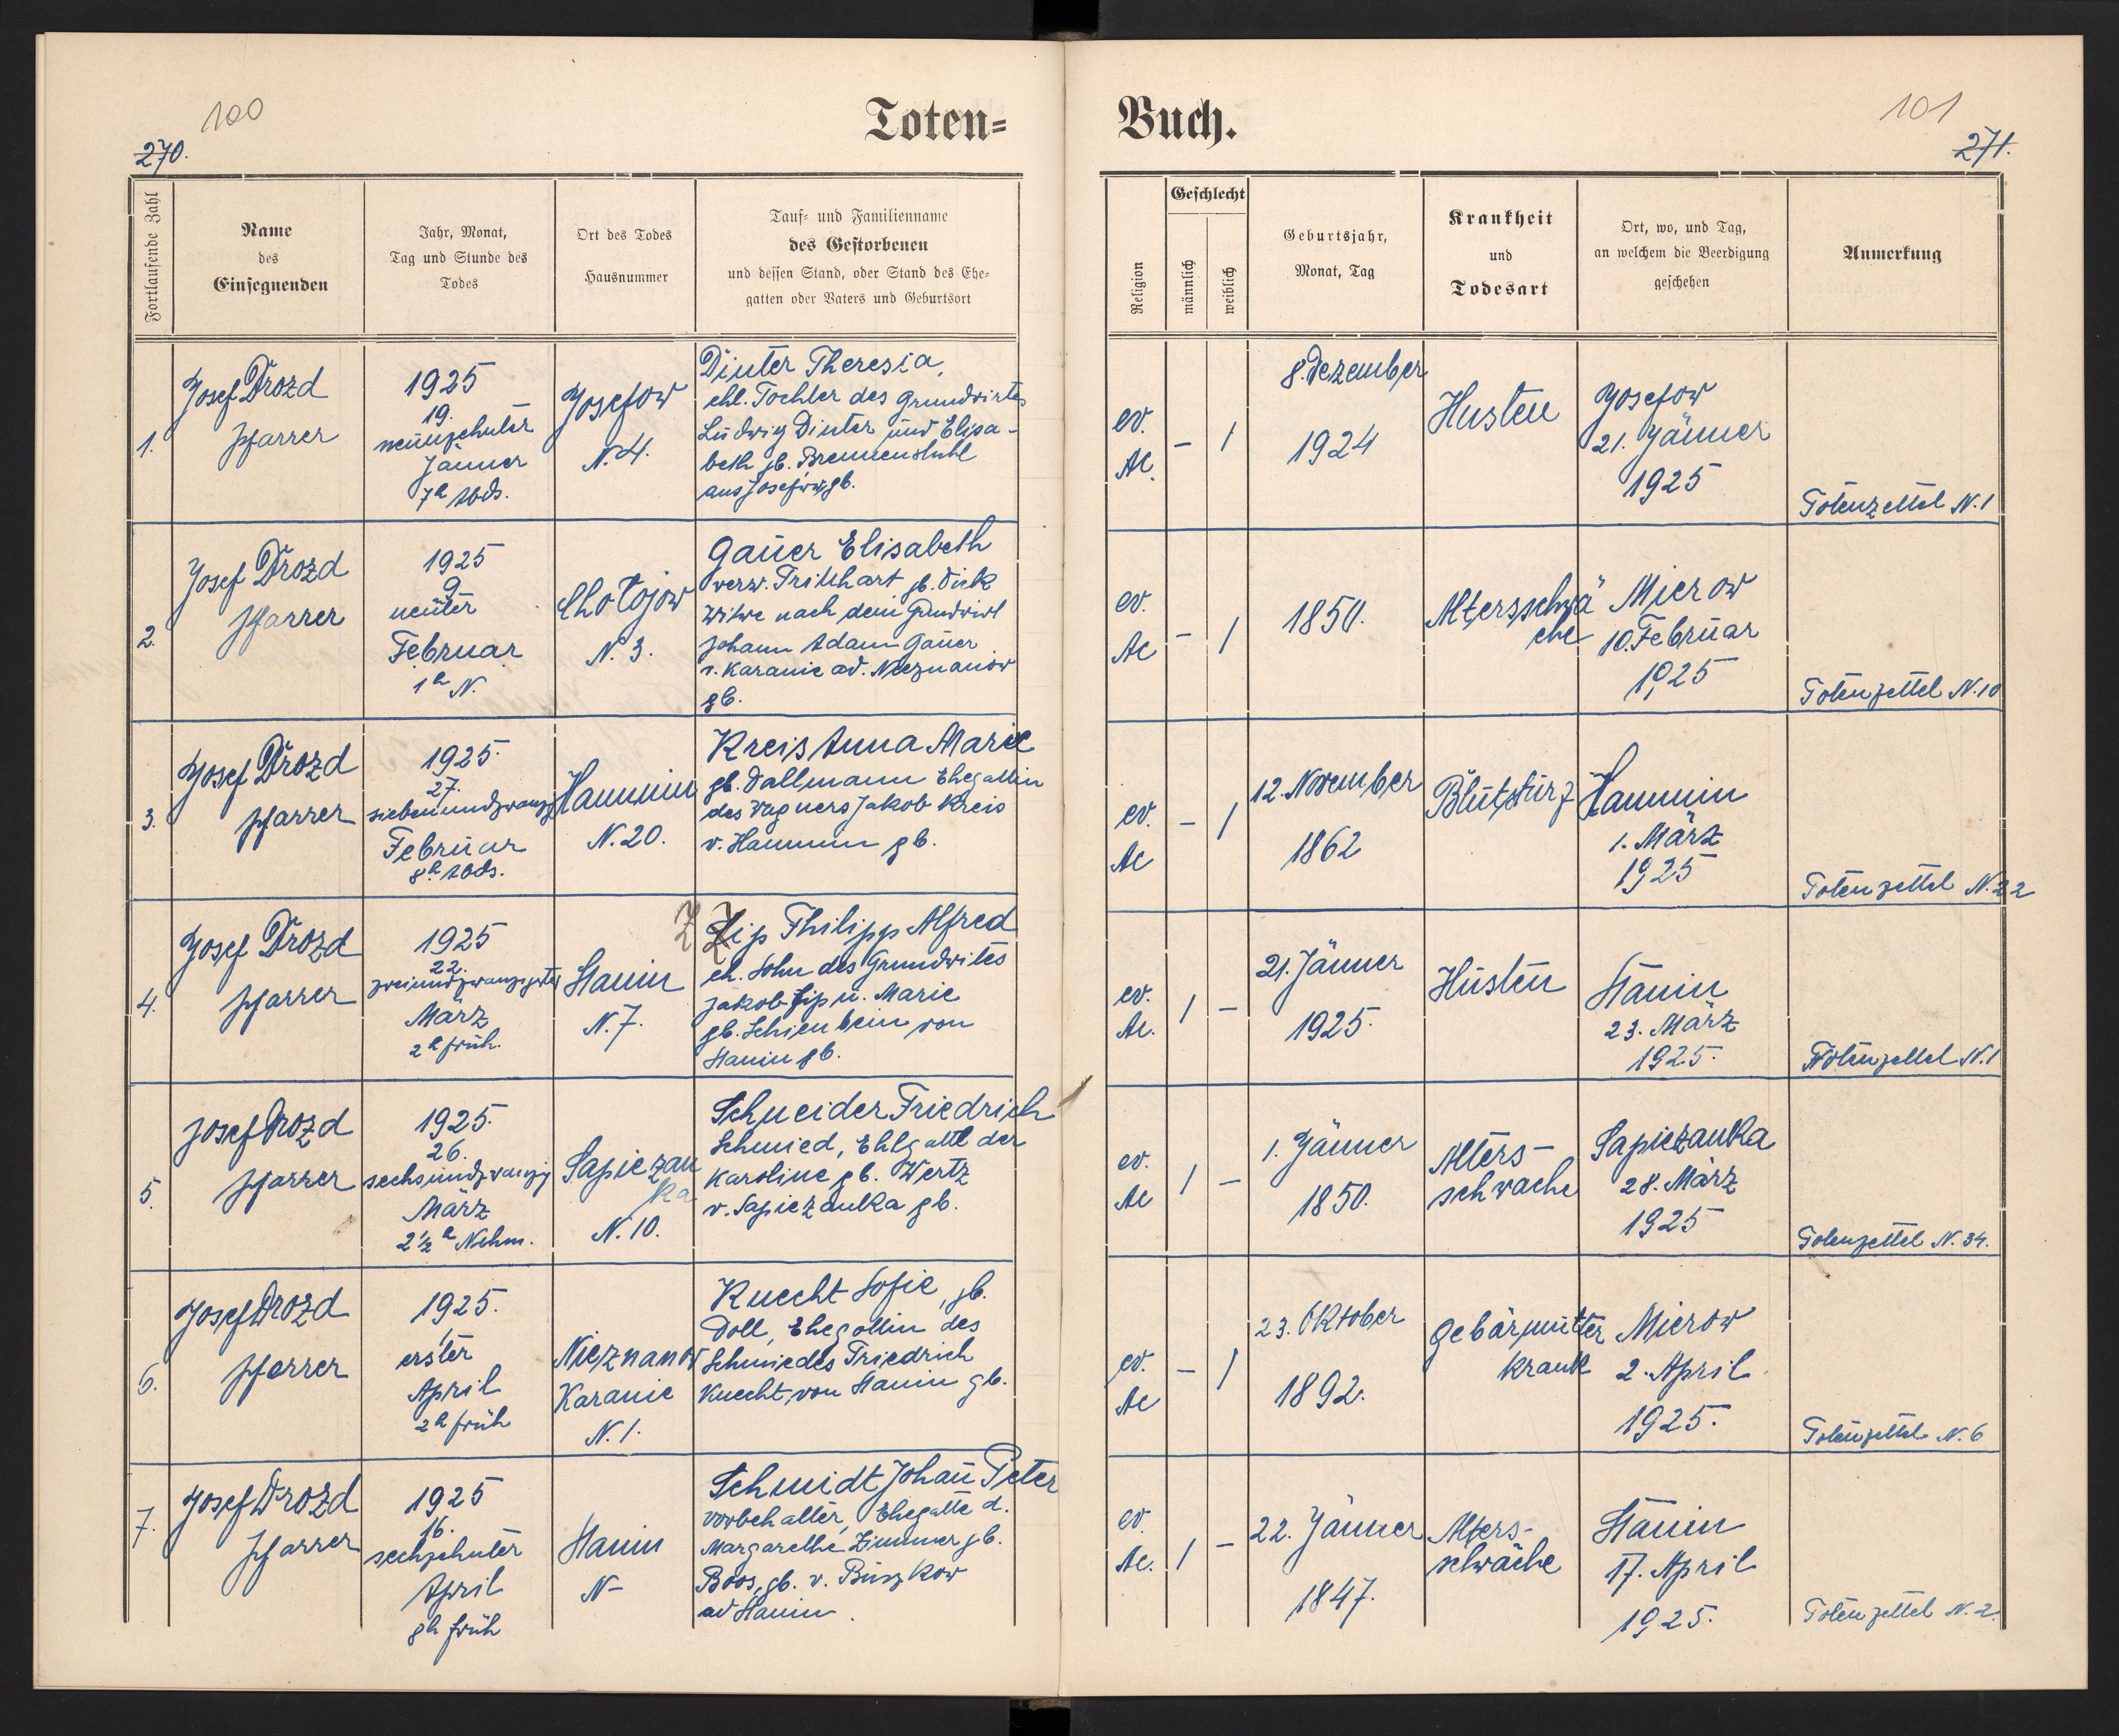 100
270.
Toten=
Fortlaufende Zahl
Name
des
Einsegnenden
Jahr, Monat,
Tag und Stunde des
Todes
Ort des Todes
Hausnummer
Tauf= und Familienname
des Gestorbenen
und dessen Stand, oder Stand des Ehe=
gatten oder Vaters und Geburtsort
1.
Josef Drozd
Pfarrer
1925
19.
neunzehnter
Jänner
7h Abds.
Josefow
N. 4.
Dinter Theresia,
ehl. Tochter des Grundwirtes
Ludwig Dinter und Elisa-
beth gb. Brennenstuhl
aus Josefow gb.
2.
Josef Drozd
Pfarrer
1925
9
neunter
Februar
1h N.
Chołojow
N. 3.
Gauer Elisabeth
verw. Tritthart gb. Dick
Witwe nach dem Grundwirt
Johann Adam Gauer
v. Karanie ad. Nieznanow
gb.
3.
Josef Drozd
Pfarrer
1925.
27.
siebenundzwanzig
Februar
8h Abds.
Hanunin
N. 20.
Kreis Anna Marie
gb. Dallmann Ehegattin
des Wagners Jakob Kreis
v. Hanunin gb.
4.
Josef Drozd
Pfarrer
1925
22.
zweiundzwanzigster
März
2h früh.
Stanin
N. 7.
Z Zip Philipp Alfred
eh. Sohn des Grundwites
Jakob Zip u. Marie
gb. Schienbein von
Stanin gb.
5.
Josef Drozd
Pfarrer
1925.
26.
sechsundzwanzig
März
2 1/2 h Nchm.
Sapiezan
ka
N. 10.
Schneider Friedrich
Schmied, Ehegatte der
Karoline gb. Wertz
v. Sapiezanka gb.
6.
Josef Drozd
Pfarrer
1925.
1.
erster
April
2h früh
Nieznanow
Karanie
N. 1.
Knecht Sofie, gb.
Doll, Ehegattin des
Schmiedes Friedrich
Knecht, von Stanin gb.
7.
Josef Drozd
Pfarrer
1925
16.
sechzehnter
April
8h früh
Stanin
N-
Schmidt Johan̄ Peter
Vorbehalter, Ehegatte d.
Margarethe Zimmer gb.
Boos, gb. v. Buszkow
ad Stanin.
Buch.
101
271.
Religion
Geschlecht
männlich
weiblich
Geburtsjahr,
Monat, Tag
Krankheit
und
Todesart
Ort, wo, und Tag,
an welchem die Beerdigung
geschehen
Anmerkung
ev.
AC.
- 1
8. Dezember
1924
Husten
Josefow
21. Jänner
1925
Totenzettel N. 1
ev.
AC
- 1
1850.
Altersschwä
che
Mierow
10. Februar
1925
Totenzettel N. 10
ev.
AC
- 1
12. November
1862
Blutsturz
Hanunin
1. März
1925
Totenzettel N. 22
ev.
AC.
1 -
21. Jänner
1925.
Husten
Stanin
23. März
1925.
Totenzettel N. 1
ev.
AC
1 -
1. Jänner
1850.
Alters-
schwache
Sapiezanka
28. März
1925
Totenzettel N. 34.
ev.
AC
- 1
23. Oktober
1892.
Gebärmutter
krank
Mierow
2. April
1925.
Totenzettel N. 6
ev.
AC.
1 -
22. Jänner
1847.
Alters-
schwäche
Stanin
17. April
1925.
Totenzettel N. 2.